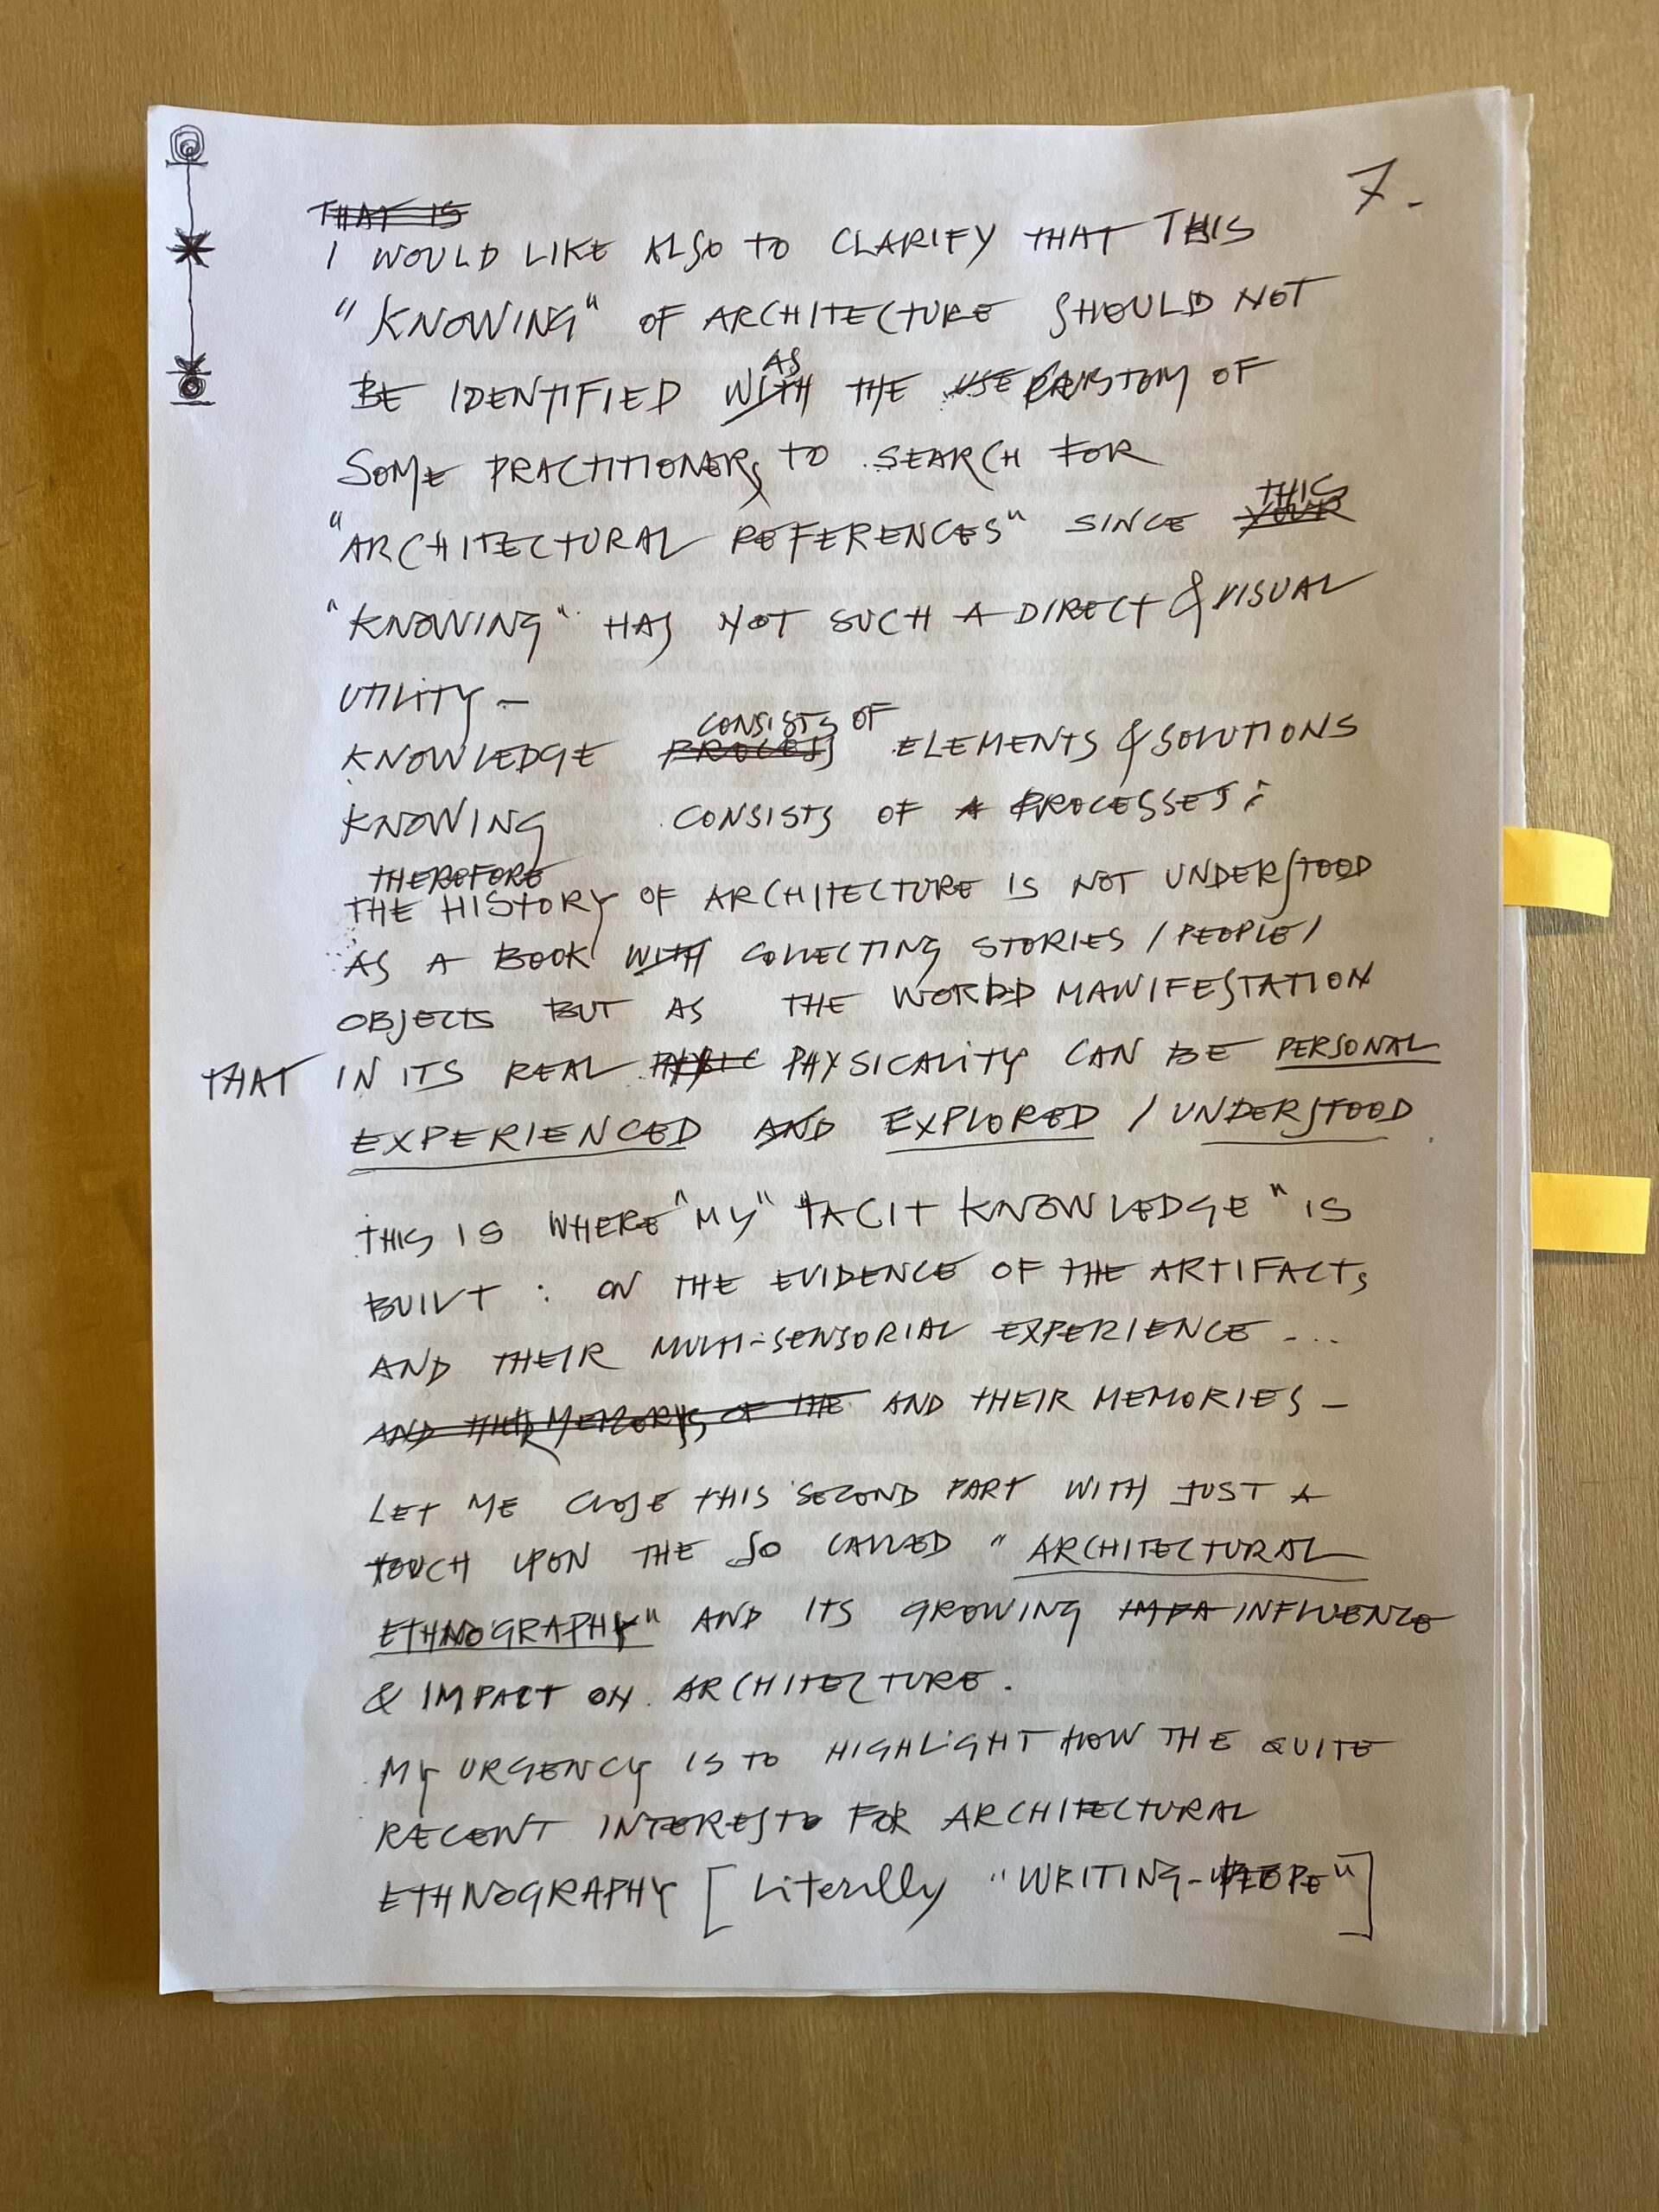 7.
THAT IS
I WOULD LIKE ALSO TO CLARIFY THAT THIS
"KNOWING" OF ARCHITECTURE SHOULD NOT
AS
BE IDENTIFIED WITH THE USE OF
SOME PRACTITIONERS TO SEARCH FOR
THIS
"ARCHITECTURAL REFERENCES" SINCE YOUR
"KNOWING" HAS NOT SUCH A DIRECT & VISUAL
UTILITY –
CONSISTS OF
KNOWLEDGE PROCESS ELEMENTS & SOLUTIONS
KNOWING CONSISTS OF A PROCESSES:
THEREFORE
THE HISTORY OF ARCHITECTURE IS NOT UNDERSTOOD
AS A BOOK WITH COLLECTING STORIES / PEOPLE /
OBJECTS BUT AS THE MANIFESTATION
THAT IN ITS REAL PHYSICALITY CAN BE PERSONAL
EXPERIENCED AND EXPLORED / UNDERSTOOD.
THIS IS WHERE "MY" "TACIT KNOWLEDGE" IS
BUILT : ON THE EVIDENCE OF THE ARTIFACTS
AND THEIR MULTI-SENSORIAL EXPERIENCE ....
AND THEIR MEMORYS OF THE AND THEIR MEMORIES –
LET ME CLOSE THIS SECOND PART WITH JUST A
TOUCH UPON THE SO CALLED "ARCHITECTURAL
ETHNOGRAPHY" AND ITS GROWING IMPA INFLUENCE
& IMPACT ON ARCHITECTURE.
MY URGENCY IS TO HIGHLIGHT HOW THE QUITE
RECENT INTEREST FOR ARCHITECTURAL
ETHNOGRAPHY [Literilly "WRITING-